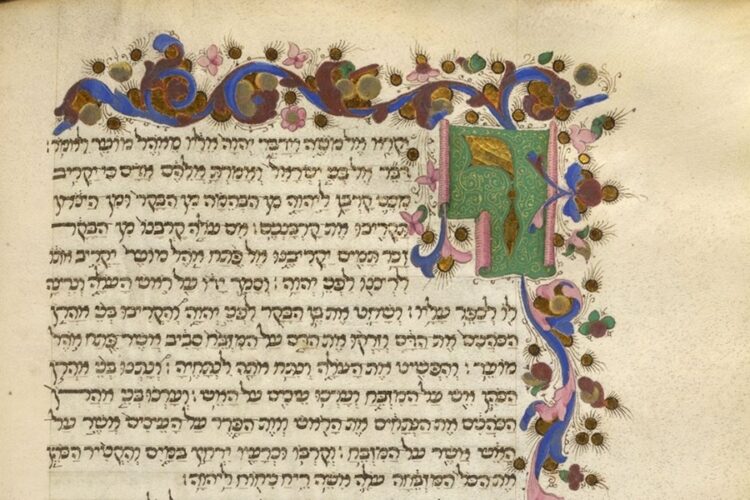 ויקרא אל משה וידבר יהוה אליו מאהל מועד לאמר
דבר אל בני ישראל ואמרת אלהם אדם כי יקריב
מכם קרבן ליהוה מן הבהמה מן הבקר ומן הצאן
תקריבו את קרבנכם: אם עלה קרבנו מן הבקר
זכר תמים יקריבנו אל פתח אהל מועד יקריב אתו
לרצנו לפני יהוה: וסמך ידו על ראש העלה ונרצה
לו לכפר עליו: ושחט את בן הבקר לפני יהוה והקריבו בני אהרן
הכהנים את הדם וזרקו את הדם על המזבח סביב אשר פתח אהל
מועד: והפשיט את העלה ונתח אתה לנתחיה: ונתנו בני אהרן
הכהן אש על המזבח וערכו עצים על האש: וערכו בני אהרן
הכהנים את הנתחים את הראש ואת הפדר על העצים אשר על
האש אשר על המזבח: וקרבו וכרעיו ירחץ במים והקטיר הכהן
את הכל המזבחה עלה אשה ריח ניחוח ליהוה: